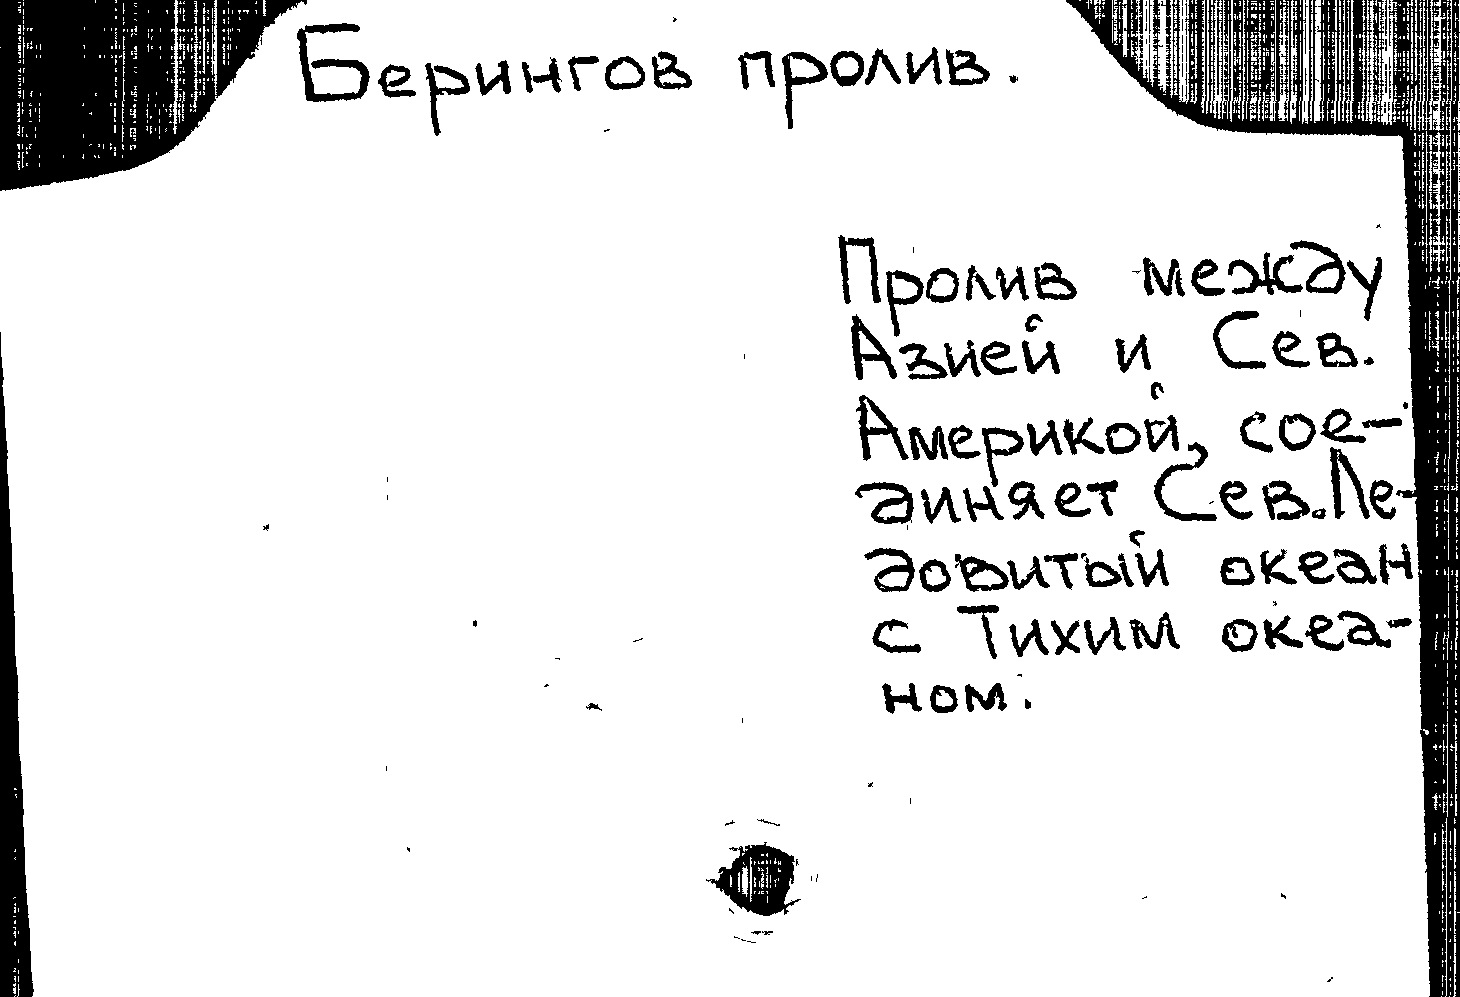 Берингов пролив.
Пролив между
Азией и Сев.
Америкой, сое-
диняет Сев. Ле-
довитый океан
с Тихим океа-
ном.